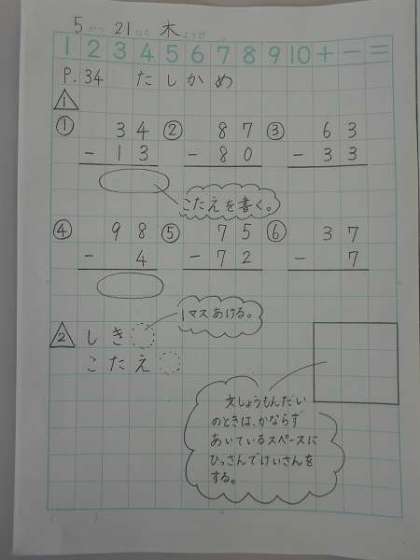 5がつ 21にち 木ようび
1 2 3 4 5 6 7 8 9 10 + − =
P.34 たしかめ
1
① 34 ② 87 ③ 63
−13 −80 −33
こたえを書く。
④ 98 ⑤ 75 ⑥ 37
−4 −72 −7
1マスあける。
2 しき
こたえ
文しょうもんだい
のときは、かならず
あいているスペースに
ひっさんでけいさんを
する。